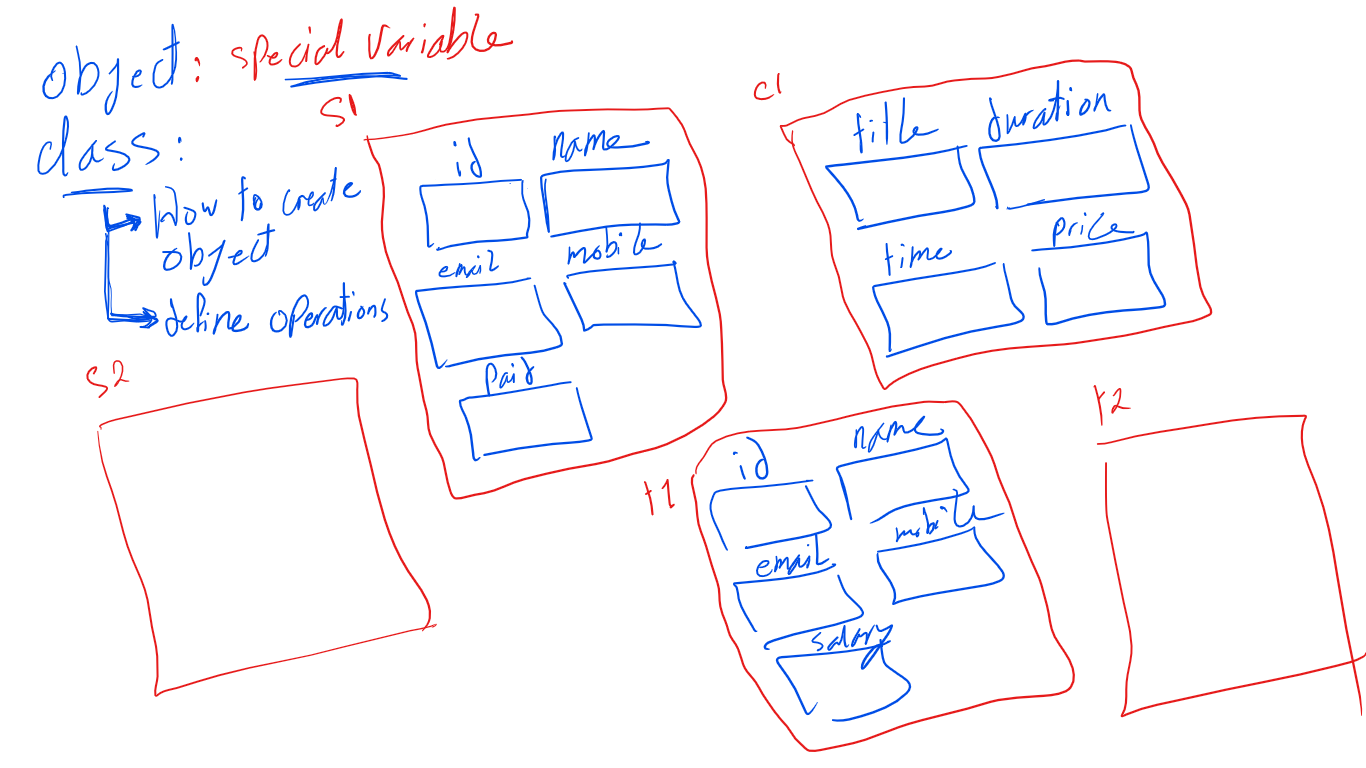 object: special variable
class:
How to create
object
define operations
S1
id name
email mobile
paid
c1
title duration
time price
S2
t1
id name
email mobile
salary
t2